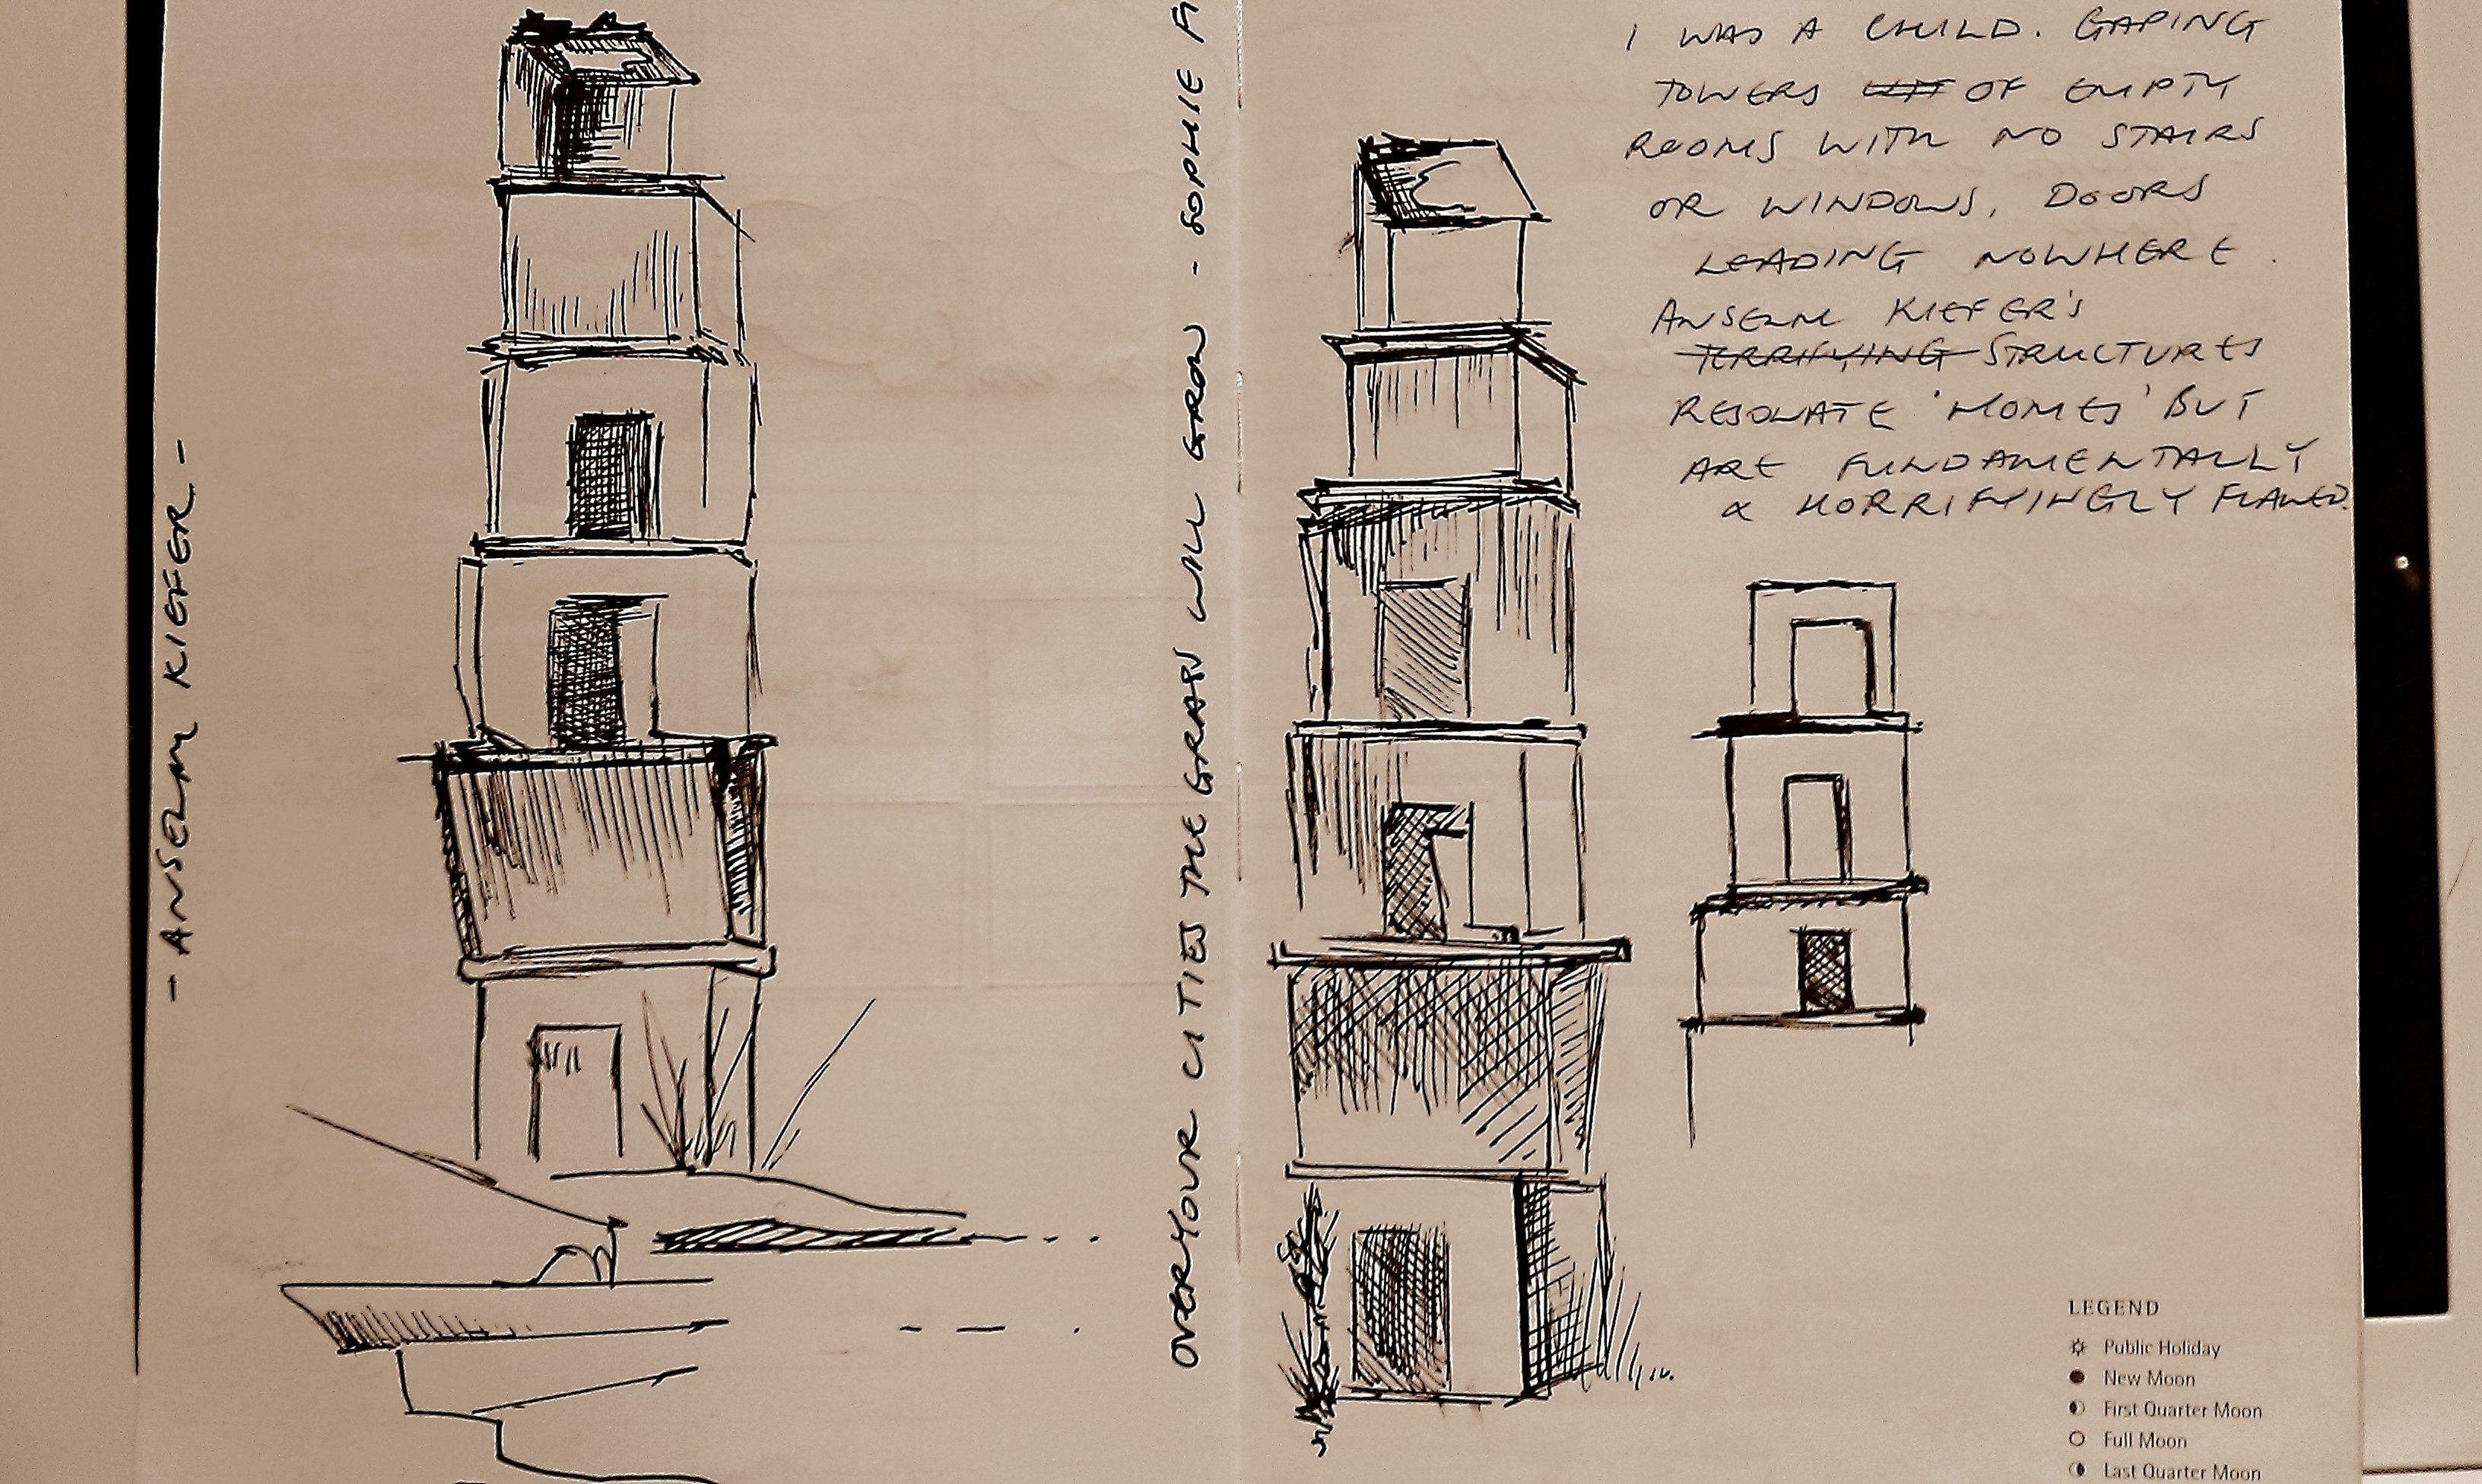 - ANSELM KIEFER -
OVER YOUR CITIES THE GRASS WILL GROW - SOPHIE FI
I WAS A CHILD. GAPING
TOWERS OF EMPTY
ROOMS WITH NO STAIRS
OR WINDOWS, DOORS
LEADING NOWHERE.
ANSELM KIEFER'S
TERRIFYING STRUCTURES
RESONATE 'HOMES' BUT
ARE FUNDAMENTALLY
& HORRIFYINGLY FLAWED.
LEGEND
Public Holiday
New Moon
First Quarter Moon
Full Moon
Last Quarter Moon